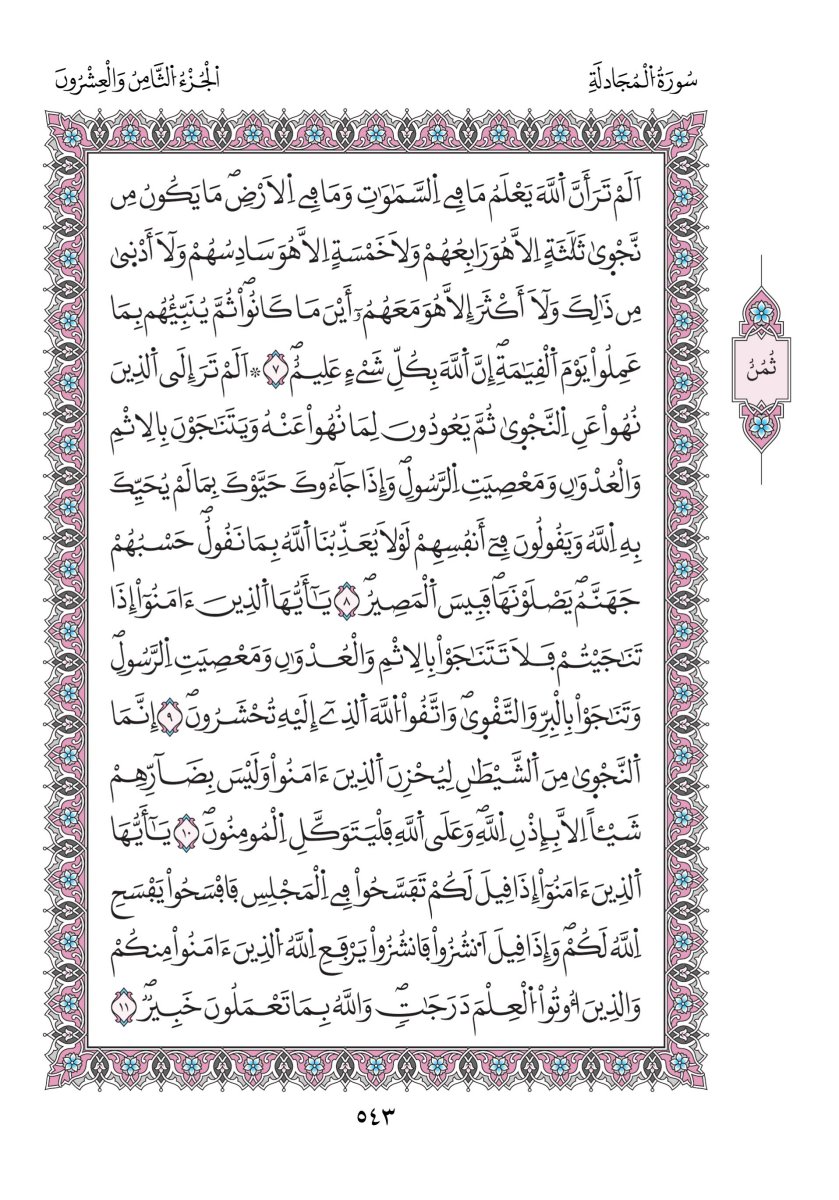 سُورَةُ اُلْمُجَادلَةِ
اَلْجُزْءُ اُلثَّامِنُ وَالْعِشْرُونَ
اَلَمْ تَرَ أَنَّ اَللَّهَ يَعْلَمُ مَا فِے اِلسَّمَٰوَٰتِ وَمَا فِے اِلَارْضِۖ مَا يَكُونُ مِن
نَّجْو۪يٰ ثَلَٰثَةٍ اِلَّا هُوَ رَابِعُهُمْ وَلَا خَمْسَةٍ اِلَّا هُوَ سَادِسُهُمْ وَلَآ أَدْن۪يٰ
مِن ذَٰلِكَ وَلَآ أَكْثَرَ إِلَّا هُوَ مَعَهُمُۥٓ أَيْنَ مَا كَانُواْۖ ثُمَّ يُنَبِّئُهُم بِمَا
عَمِلُواْ يَوْمَ اَلْقِيَٰمَةِۖ إِنَّ اَللَّهَ بِكُلِّ شَےْءٍ عَلِيمٌۖ ٧ ۞ اَلَمْ تَرَ إِلَي اَلذِينَ
نُهُواْ عَنِ اِلنَّجْو۪يٰ ثُمَّ يَعُودُونَ لِمَا نُهُواْ عَنْهُ وَيَتَنَٰجَوْنَ بِالِاثْمِ
وَالْعُدْوَٰنِ وَمَعْصِيَتِ اِلرَّسُولِۖ وَإِذَا جَآءُوكَ حَيَّوْكَ بِمَا لَمْ يُحَيِّكَ
بِهِ اِللَّهُ وَيَقُولُونَ فِےٓ أَنفُسِهِمْ لَوْلَا يُعَذِّبُنَا اَللَّهُ بِمَا نَقُولُۖ حَسْبُهُمْ
جَهَنَّمُ يَصْلَوْنَهَاۖ فَبِيسَ اَلْمَصِيرُۖ ٨ يَٰٓأَيُّهَا اَلذِينَ ءَامَنُوٓاْ إِذَا
تَنَٰجَيْتُمْ فَلَا تَتَنَٰجَوْاْ بِالِاثْمِ وَالْعُدْوَٰنِ وَمَعْصِيَتِ اِلرَّسُولِۖ
وَتَنَٰجَوْاْ بِالْبِرِّ وَالتَّقْو۪يٰۖ وَاتَّقُواْ اُللَّهَ اَلذِےٓ إِلَيْهِ تُحْشَرُونَۖ ٩ إِنَّمَا
اَلنَّجْو۪يٰ مِنَ اَلشَّيْطَٰنِ لِيُحْزِنَ اَلذِينَ ءَامَنُواْ وَلَيْسَ بِضَآرِّهِمْ
شَيْـٔاً اِلَّا بِإِذْنِ اِللَّهِۖ وَعَلَي اَللَّهِ فَلْيَتَوَكَّلِ اِلْمُومِنُونَۖ ١٠ يَٰٓأَيُّهَا
اَلذِينَ ءَامَنُوٓاْ إِذَا قِيلَ لَكُمْ تَفَسَّحُواْ فِے اِلْمَجْلِسِ فَافْسَحُواْ يَفْسَحِ
اِللَّهُ لَكُمْۖ وَإِذَا قِيلَ اَنشُزُواْ فَانشُزُواْ يَرْفَعِ اِللَّهُ اُلذِينَ ءَامَنُواْ مِنكُمْ
وَالذِينَ أُوتُواْ اُلْعِلْمَ دَرَجَٰتٖۖ وَاللَّهُ بِمَا تَعْمَلُونَ خَبِيرٌۖ ١١
ثُمُنُ
٥٤٣